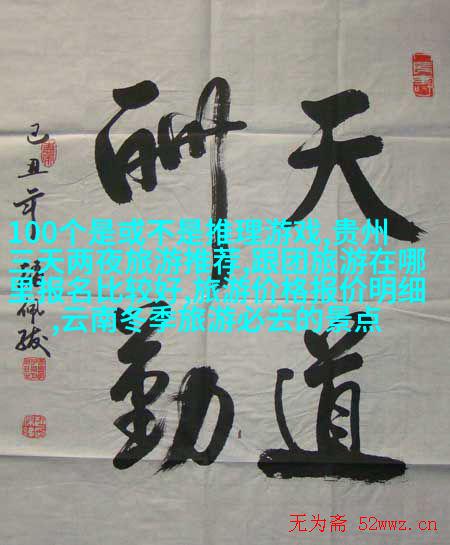 天道
酬勤
己丑年
100个是或不是推理游戏,贵州
三天两夜旅游推荐,跟团旅游在哪
里报名比较好,旅游价格报价明细
,云南冬季旅游必去的景点
无为斋 52wwz.cn